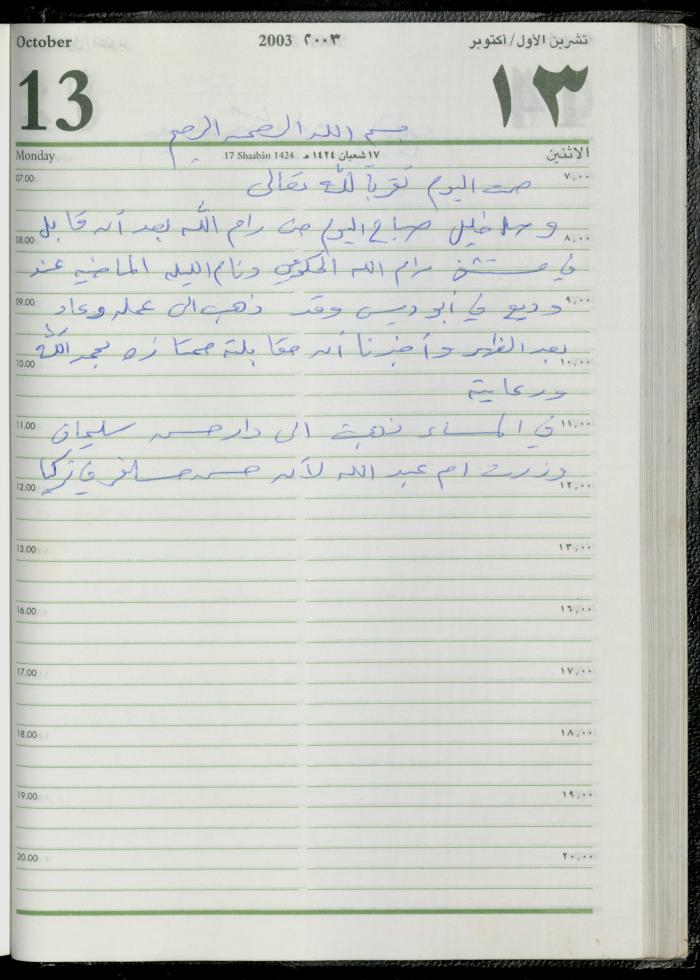 October 2003 ٢٠٠٣ تشرين الأول/أكتوبر
13 ١٣
بسم الله الرحمن الرحيم
Monday 17 Shaabân 1424 ١٧ شعبان ١٤٢٤ هـ الاثنين
07.00 صمت اليوم تقرباً لله تعالى ٧,٠٠
وصل خليل صباح اليوم من رام الله بعد أن قابل
08.00 ٨,٠٠
في مستشفى رام الله الحكومي ونام الليلة الماضية عند
09.00 وديع في أبو ديس وقد ذهب الى عمله وعاد ٩,٠٠
بعد الظهر وأخبرنا أن مقابلته ممتازه بحمد الله
10.00 ١٠,٠٠
ورعايته
11.00 في المساء ذهبت الى دار حسن سليمان ١١,٠٠
وزرت ام عبد الله لأن حسن مسافر في تركيا
12.00 ١٢,٠٠
13.00 ١٣,٠٠
16.00 ١٦,٠٠
17.00 ١٧,٠٠
18.00 ١٨,٠٠
19.00 ١٩,٠٠
20.00 ٢٠,٠٠